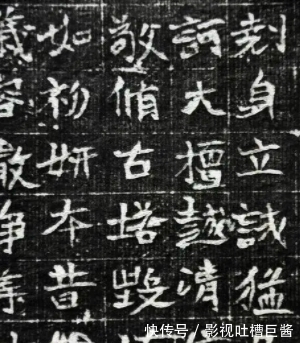 刻身立誠猛
訶大檀越清
敬脩古塔毀
如初妍本昔
快传号 / 影视吐槽巨酱